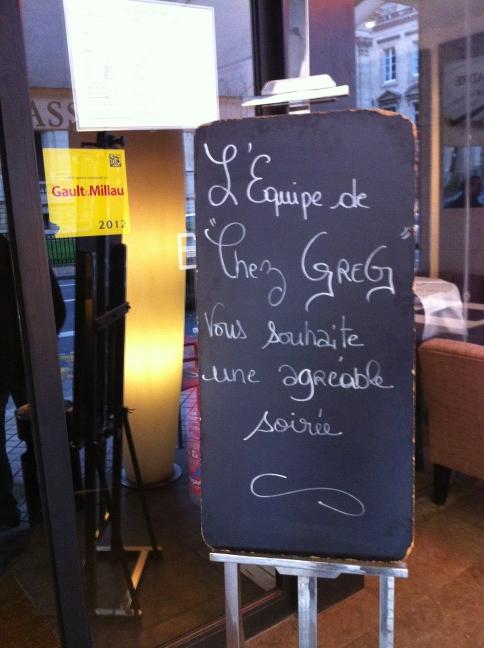 ASS
Gault&Millau
2012
L'Equipe de
"Chez GREG"
Vous souhaite
une agréable
soirée